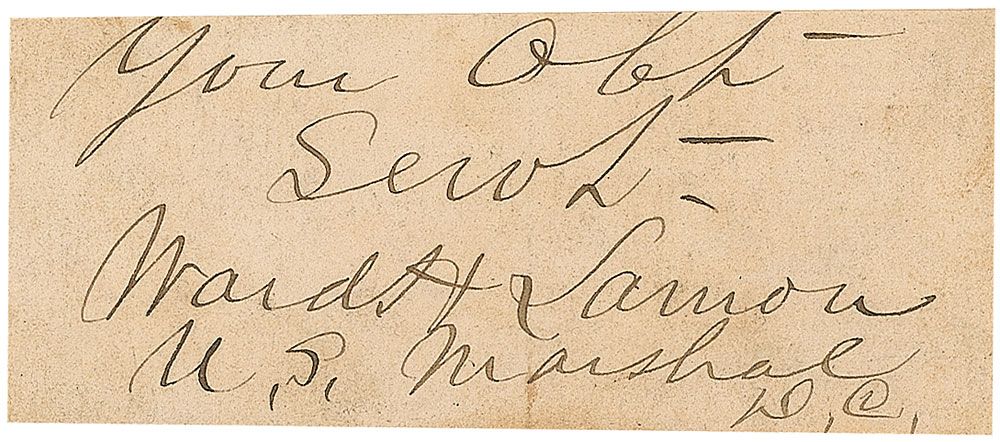 Your Obt
Servt.
Ward H Lamon
U.S. Marshal
D.C.